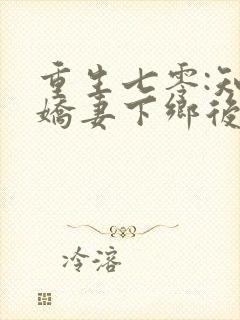 重生七零:知
嬌妻下鄉後
冷溶